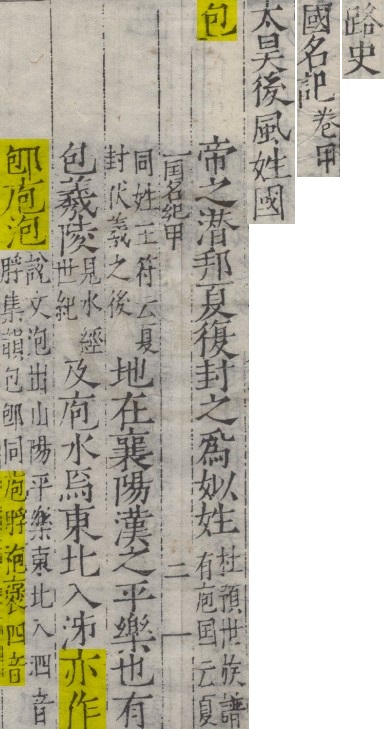 路史
國名記 卷甲
太昊後風姓國
包
帝之潜邦夏復封之爲姒姓 杜預世族譜
有庖国云夏
国名紀甲 二
同姓王符云夏
封伏羲之後
地在襄陽漢之平樂也有
包羲陵 見水經
世紀
及庖水焉東北入泲亦作
𨚔庖泡 說文泡出山陽平樂東北入泗音
脬集韻包𨚔同庖脬泡褒四音